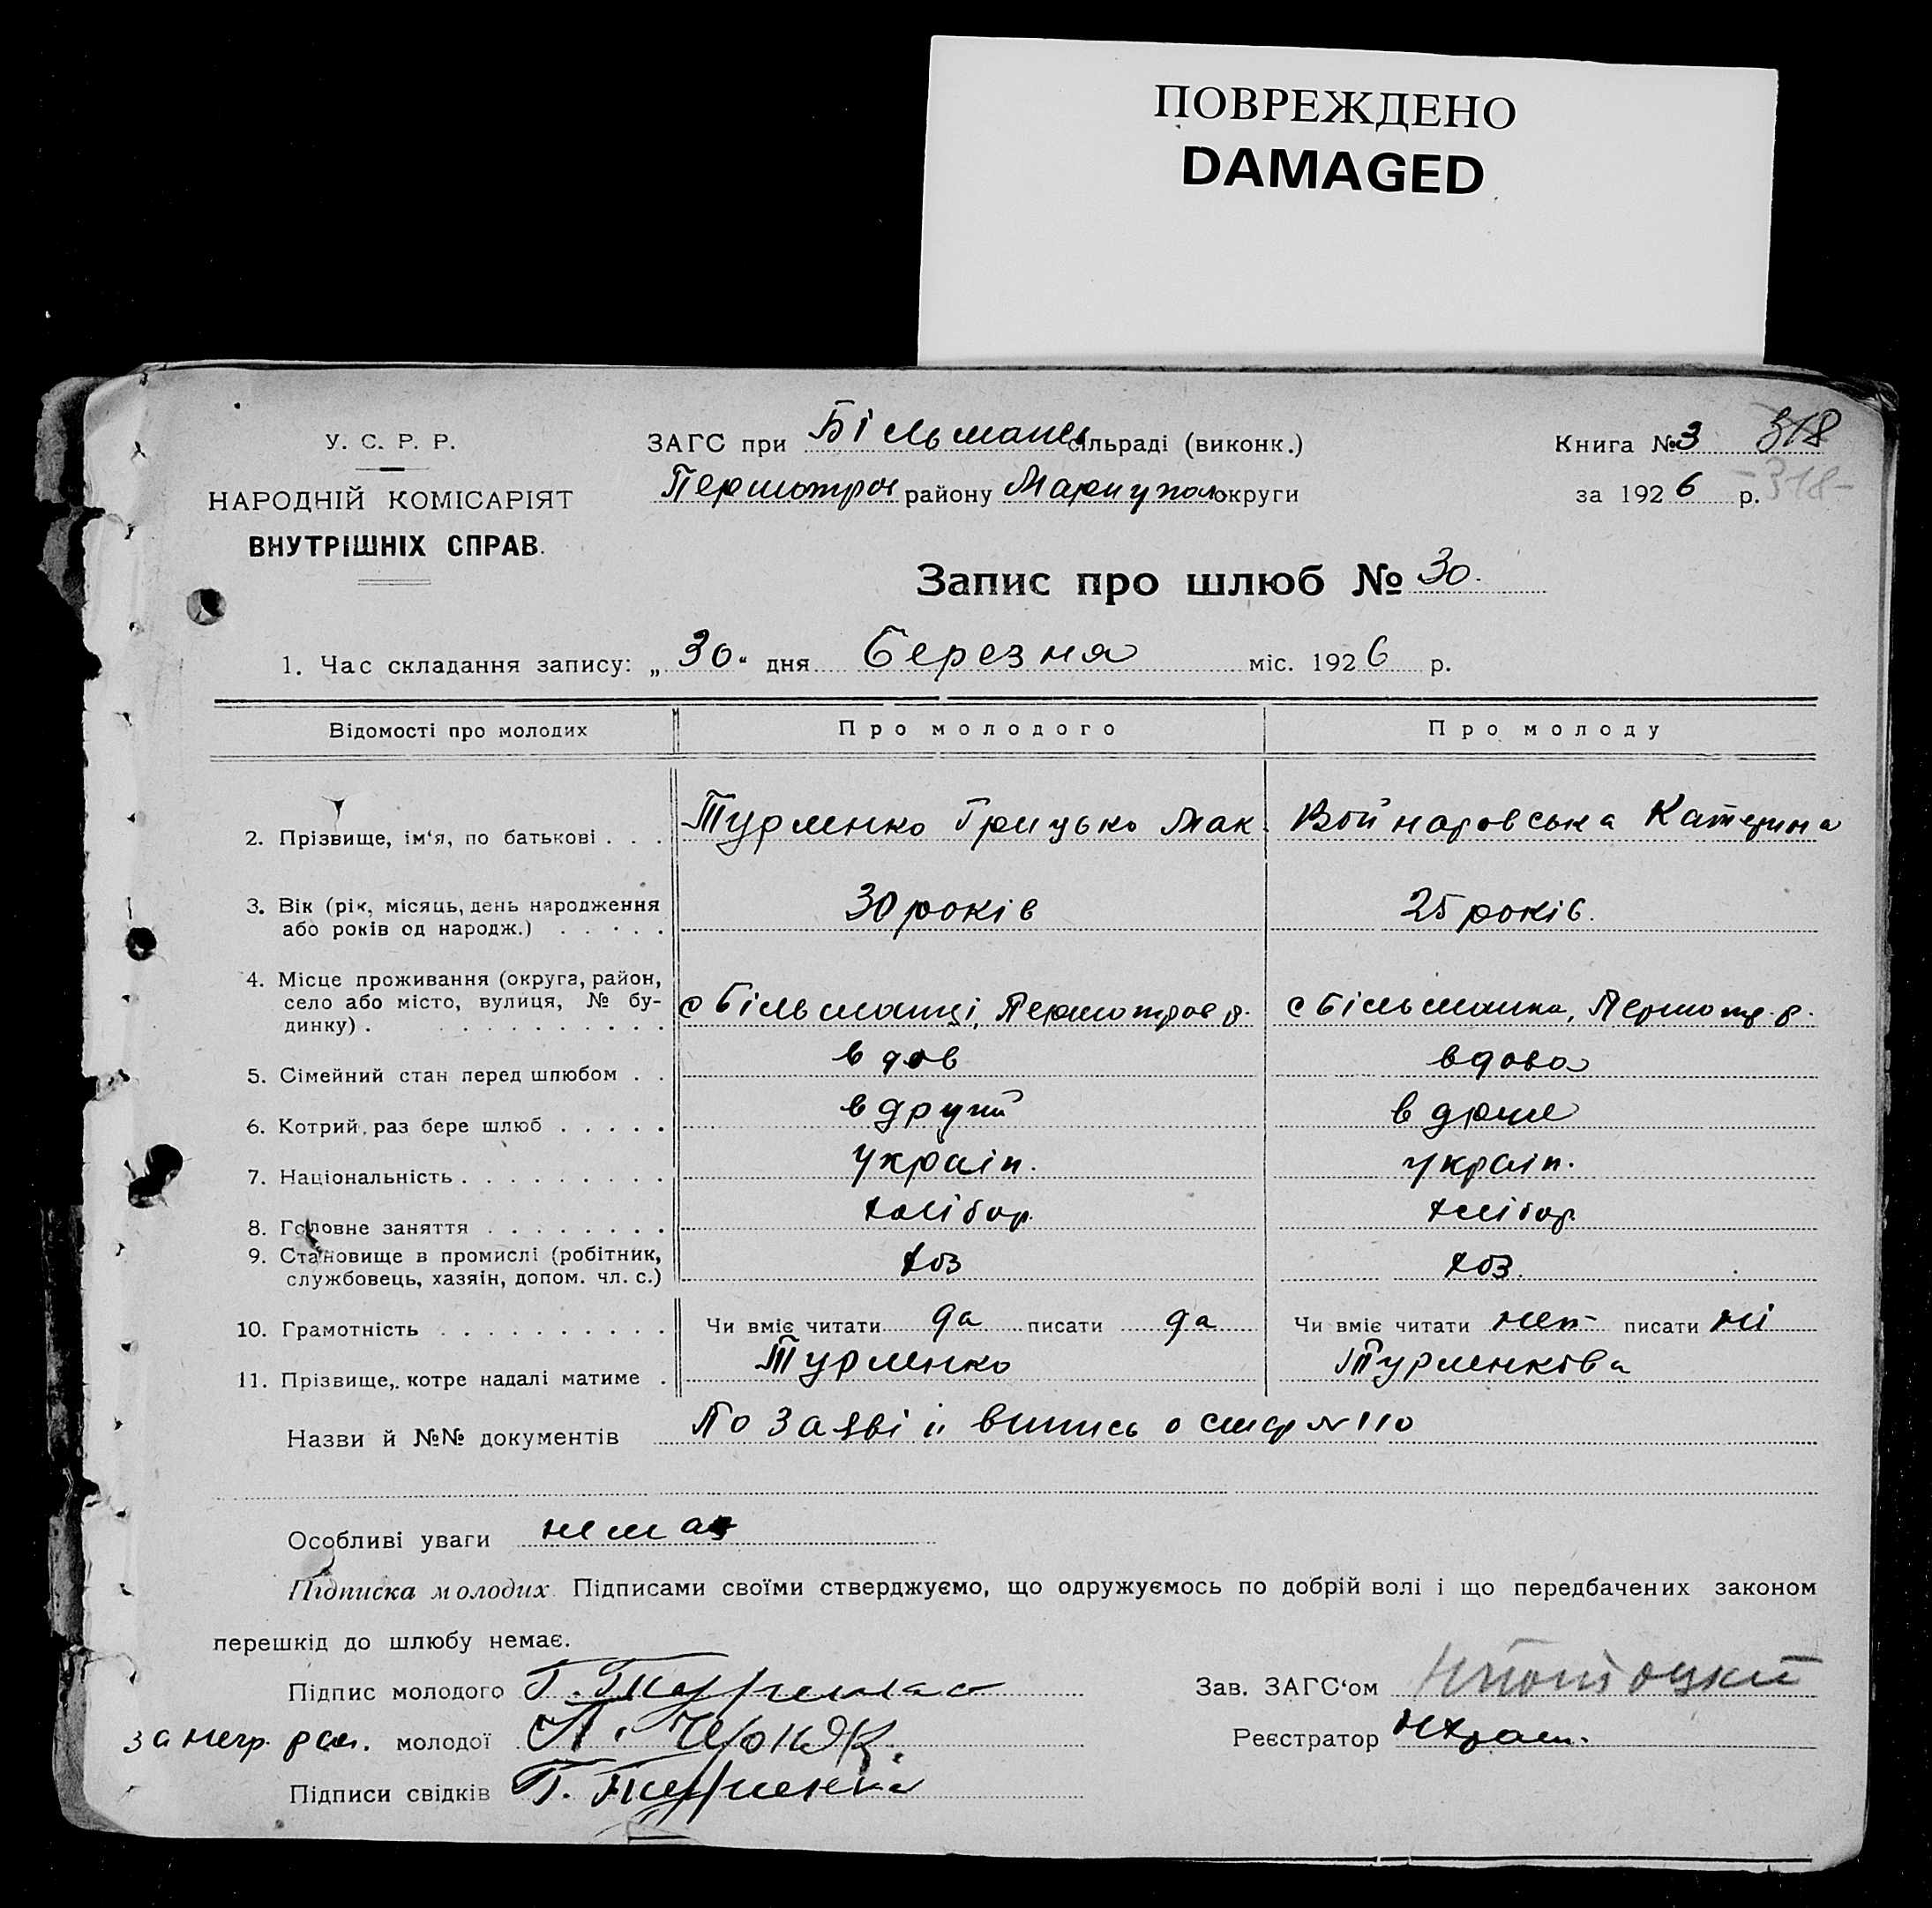 ПОВРЕЖДЕНО
DAMAGED
У. С. Р. Р.
НАРОДНІЙ КОМІСАРІЯТ
ВНУТРІШНІХ СПРАВ.
ЗАГС при Більманськ сільраді (виконк.)
Першотров району Маріупол округи
Книга № 3 318
за 1926 р. -318-
Запис про шлюб № 30.
1. Час складання запису: „30“ дня Березня міс. 1926 р.
Відомості про молодих Про молодого Про молоду
2. Прізвище, ім‘я, по батькові . . . Турленко Грицько Мак. Войнаровська Катерина
3. Вік (рік, місяць, день народження
або років од народж.) . . . . . 30 років 25 років.
4. Місце проживання (округа, район,
село або місто, вулиця, № бу-
динку) . . . . . . . . . . . с Більманці, Першотров р. с Більманка, Першотр. р.
5. Сімейний стан перед шлюбом . . вдов вдова
6. Котрий раз бере шлюб . . . . . вдругий
7. Національність . . . . . . . . . україн. україн.
8. Головне заняття . . . . . . . . хлібор. хлібор.
9. Становище в промислі (робітник,
службовець, хазяїн, допом. чл. с.) хоз хоз.
10. Грамотність . . . . . . . . . . Чи вміє читати да писати да Чи вміє читати нет писати ні
11. Прізвище, котре надалі матиме . Турленко Турленкова
Назви й №№ документів По заяві и випись о смер № 110
Особливі уваги немає
Підписка молодих. Підписами своїми стверджуємо, що одружуємось по добрій волі і що передбачених законом
перешкід до шлюбу немає.
Підпис молодого Г. Турленко Зав. ЗАГС‘ом
за негр. рсп. молодої Реєстратор
Підписи свідків Г. Турленко